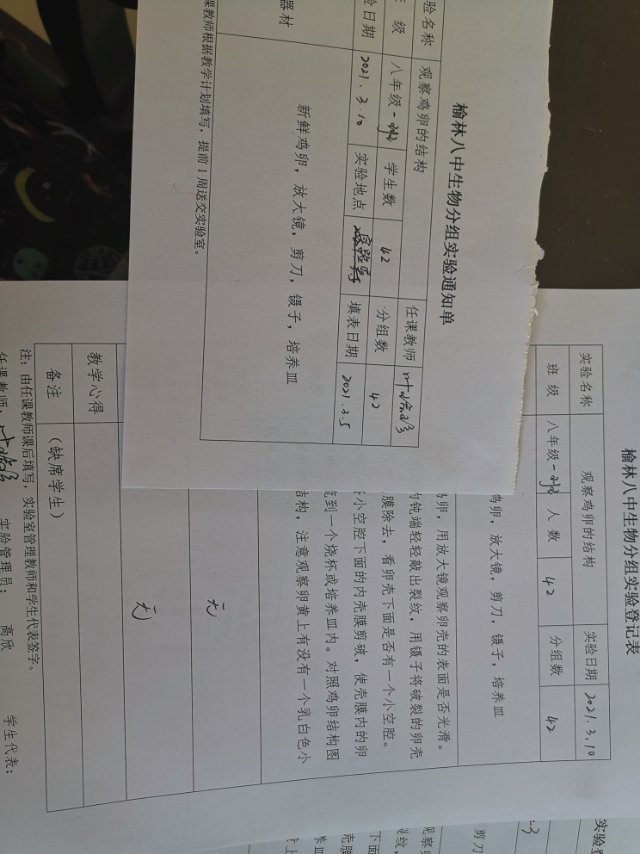 榆林八中生物分组实验通知单
验名称 观察鸡卵的结构 任课教师
级 八年级一 学生数 42 分组数 42
验日期 2021.3.10 实验地点 填表日期 2021.3.5
器材 新鲜鸡卵，放大镜，剪刀，镊子，培养皿
课教师根据教学计划填写，提前1周送交实验室。
榆林八中生物分组实验登记表
实验名称 观察鸡卵的结构 实验日期 2021.3.10
班 级 八年级一 人 数 42 分组数 42
鸡卵，放大镜，剪刀，镊子，培养皿
鸡卵，用放大镜观察卵壳的表面是否光滑。
的钝端轻轻敲出裂纹，用镊子将破裂的卵壳
膜除去，看卵壳下面是否有一个小空腔。
小空腔下面的内壳膜剪破，使壳膜内的卵
流到一个烧杯或培养皿内。对照鸡卵结构图
结构，注意观察卵黄上有没有一个乳白色小
无
无
教学心得
备注 （缺席学生）
注：由任课教师课后填写，实验室管理教师和学生代表签字。
任课教师： 实验管理员： 高欣 学生代表：
实验
剪刀
观察
裂纹
下面
壳膜